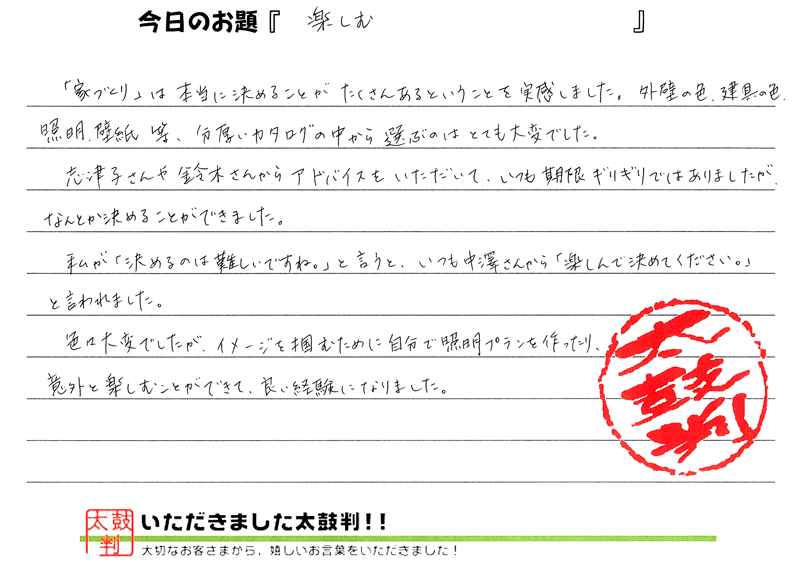 今日のお題『 楽しむ 』
「家づくり」は本当に決めることがたくさんあるということを実感しました。外壁の色、建具の色、
照明、壁紙等、分厚いカタログの中から選ぶのはとても大変でした。
志津子さんや鈴木さんからアドバイスをいただいて、いつも期限ギリギリではありましたが、
なんとか決めることができました。
私が「決めるのは難しいですね。」と言うと、いつも中澤さんから「楽しんで決めてください。」
と言われました。
色々大変でしたが、イメージを掴むために自分で照明プランを作ったり、
意外と楽しむことができて、良い経験になりました。
太鼓判
太鼓判
いただきました太鼓判!!
大切なお客さまから、嬉しいお言葉をいただきました！